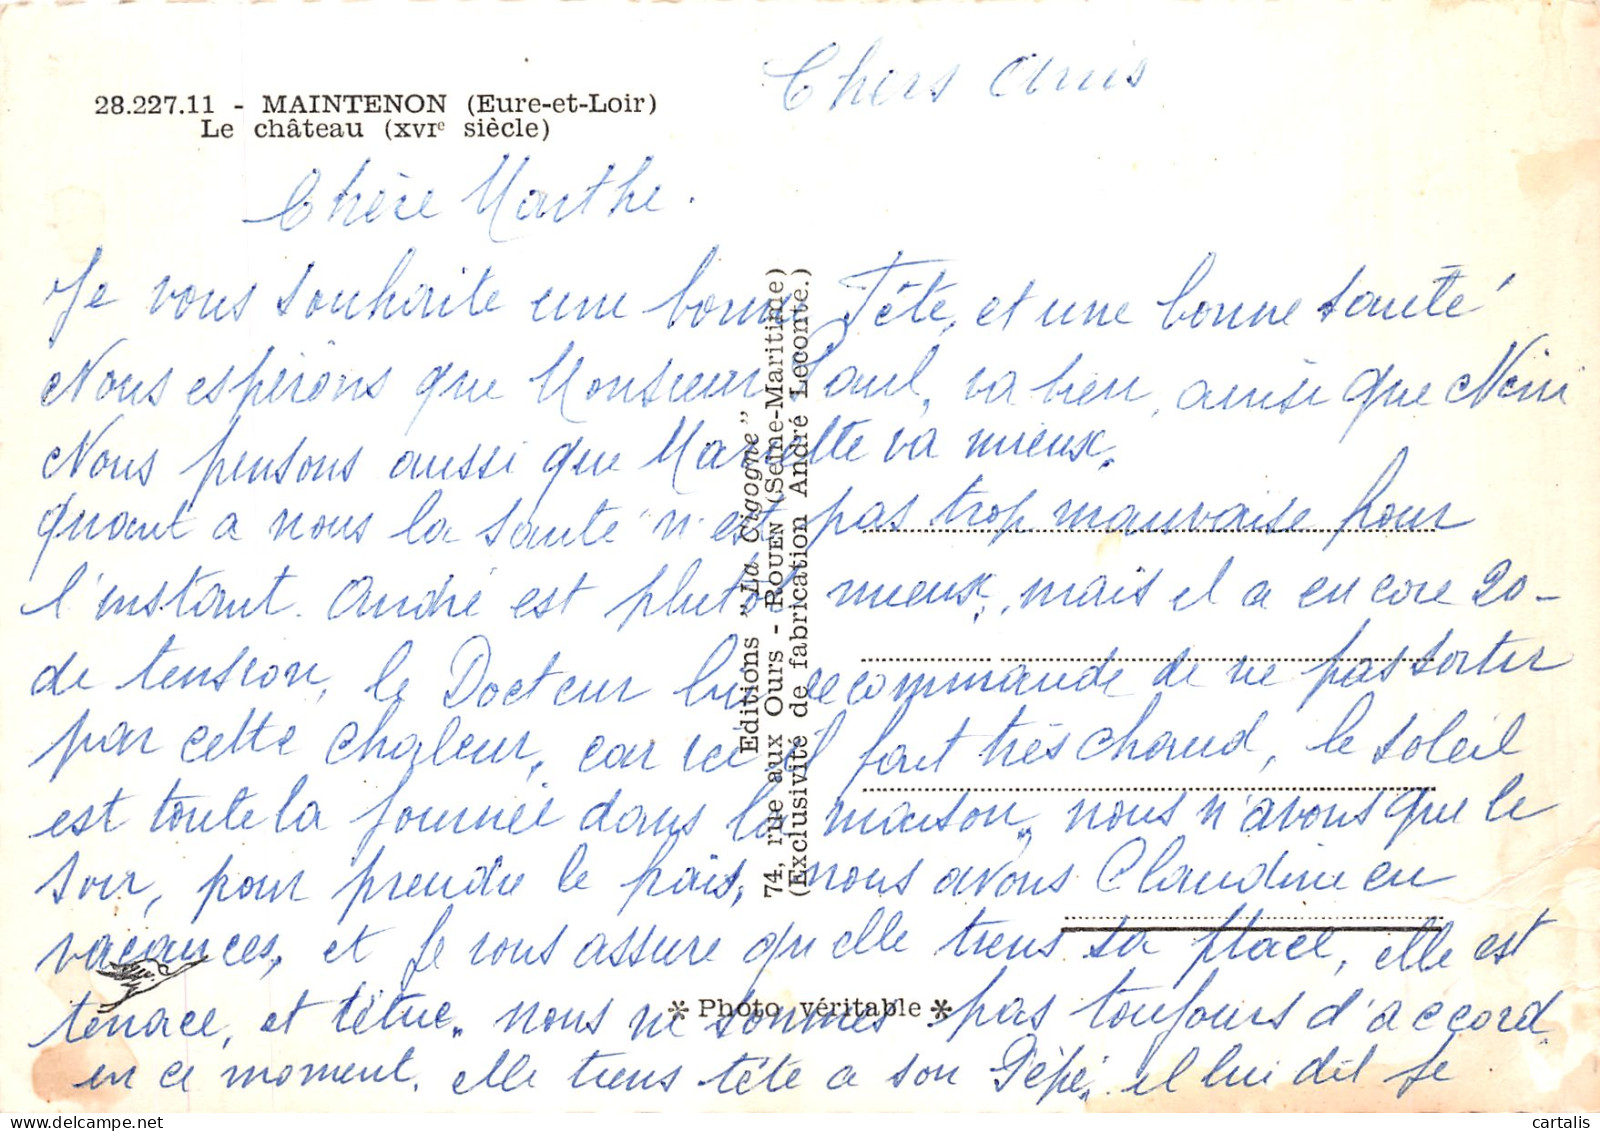 28.227.11 - MAINTENON (Eure-et-Loir)
Le château (XVIe siècle)
Chers Amis
Chère Marthe.
Je vous souhaite une bonne Fête, et une bonne santé
Nous espérons que Monsieur Paul, va bien, ainsi que Nini
Nous pensons aussi que Mariette va mieux.
quant a nous la santé n'est pas trop mauvaise pour
l'instant. André est plutot mieux, mais il a encore 20 -
de tension, le Docteur lui recommande de ne pas sortir
par cette chaleur, car ici il fait très chaud, le soleil
est toute la journée dans la maison, nous n'avons que le
soir, pour prendre le frais, nous avons Claudine en
vacances, et je vous assure qu'elle tiens sa place, elle est
tenace, et tétue. nous ne sommes pas toujours d'accord
en ce moment. elle tiens tête a son Pépé, il lui dit je
Editions "La Cigogne"
74, rue aux Ours - ROUEN (Seine-Maritime)
(Exclusivité de fabrication André Leconte.)
* Photo véritable *
cartalis